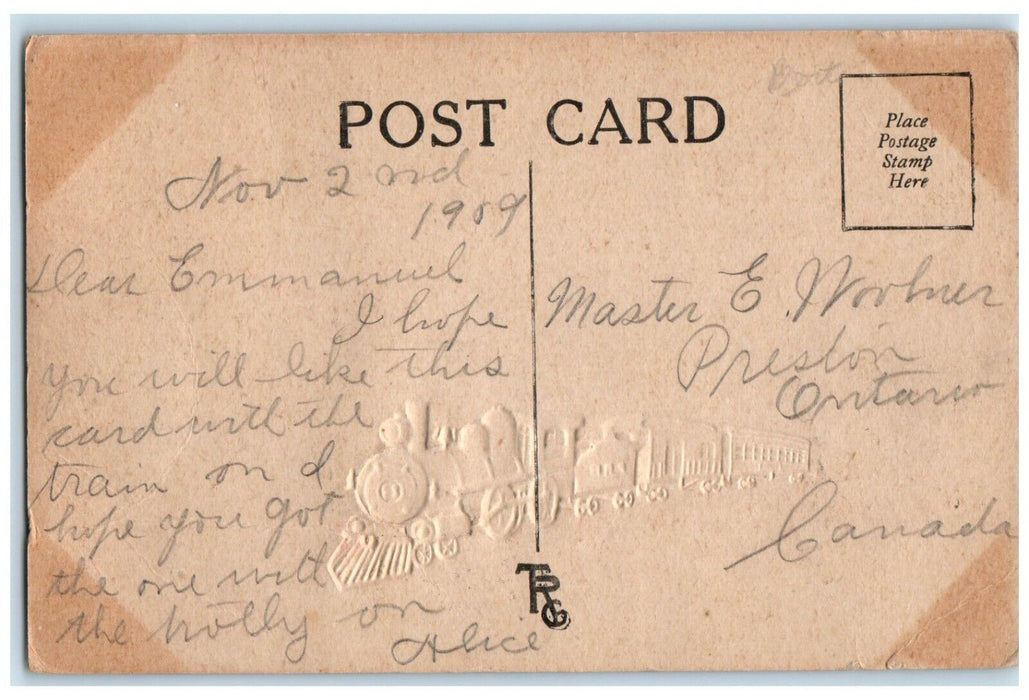 POST CARD
Place
Postage
Stamp
Here
Nov 2nd
1909
Dear Emmanuel
I hope
you will like this
card with the
train on I
hope you got
the one with
the holly on
Alice
Master E.
Preston
Ontario
Canada